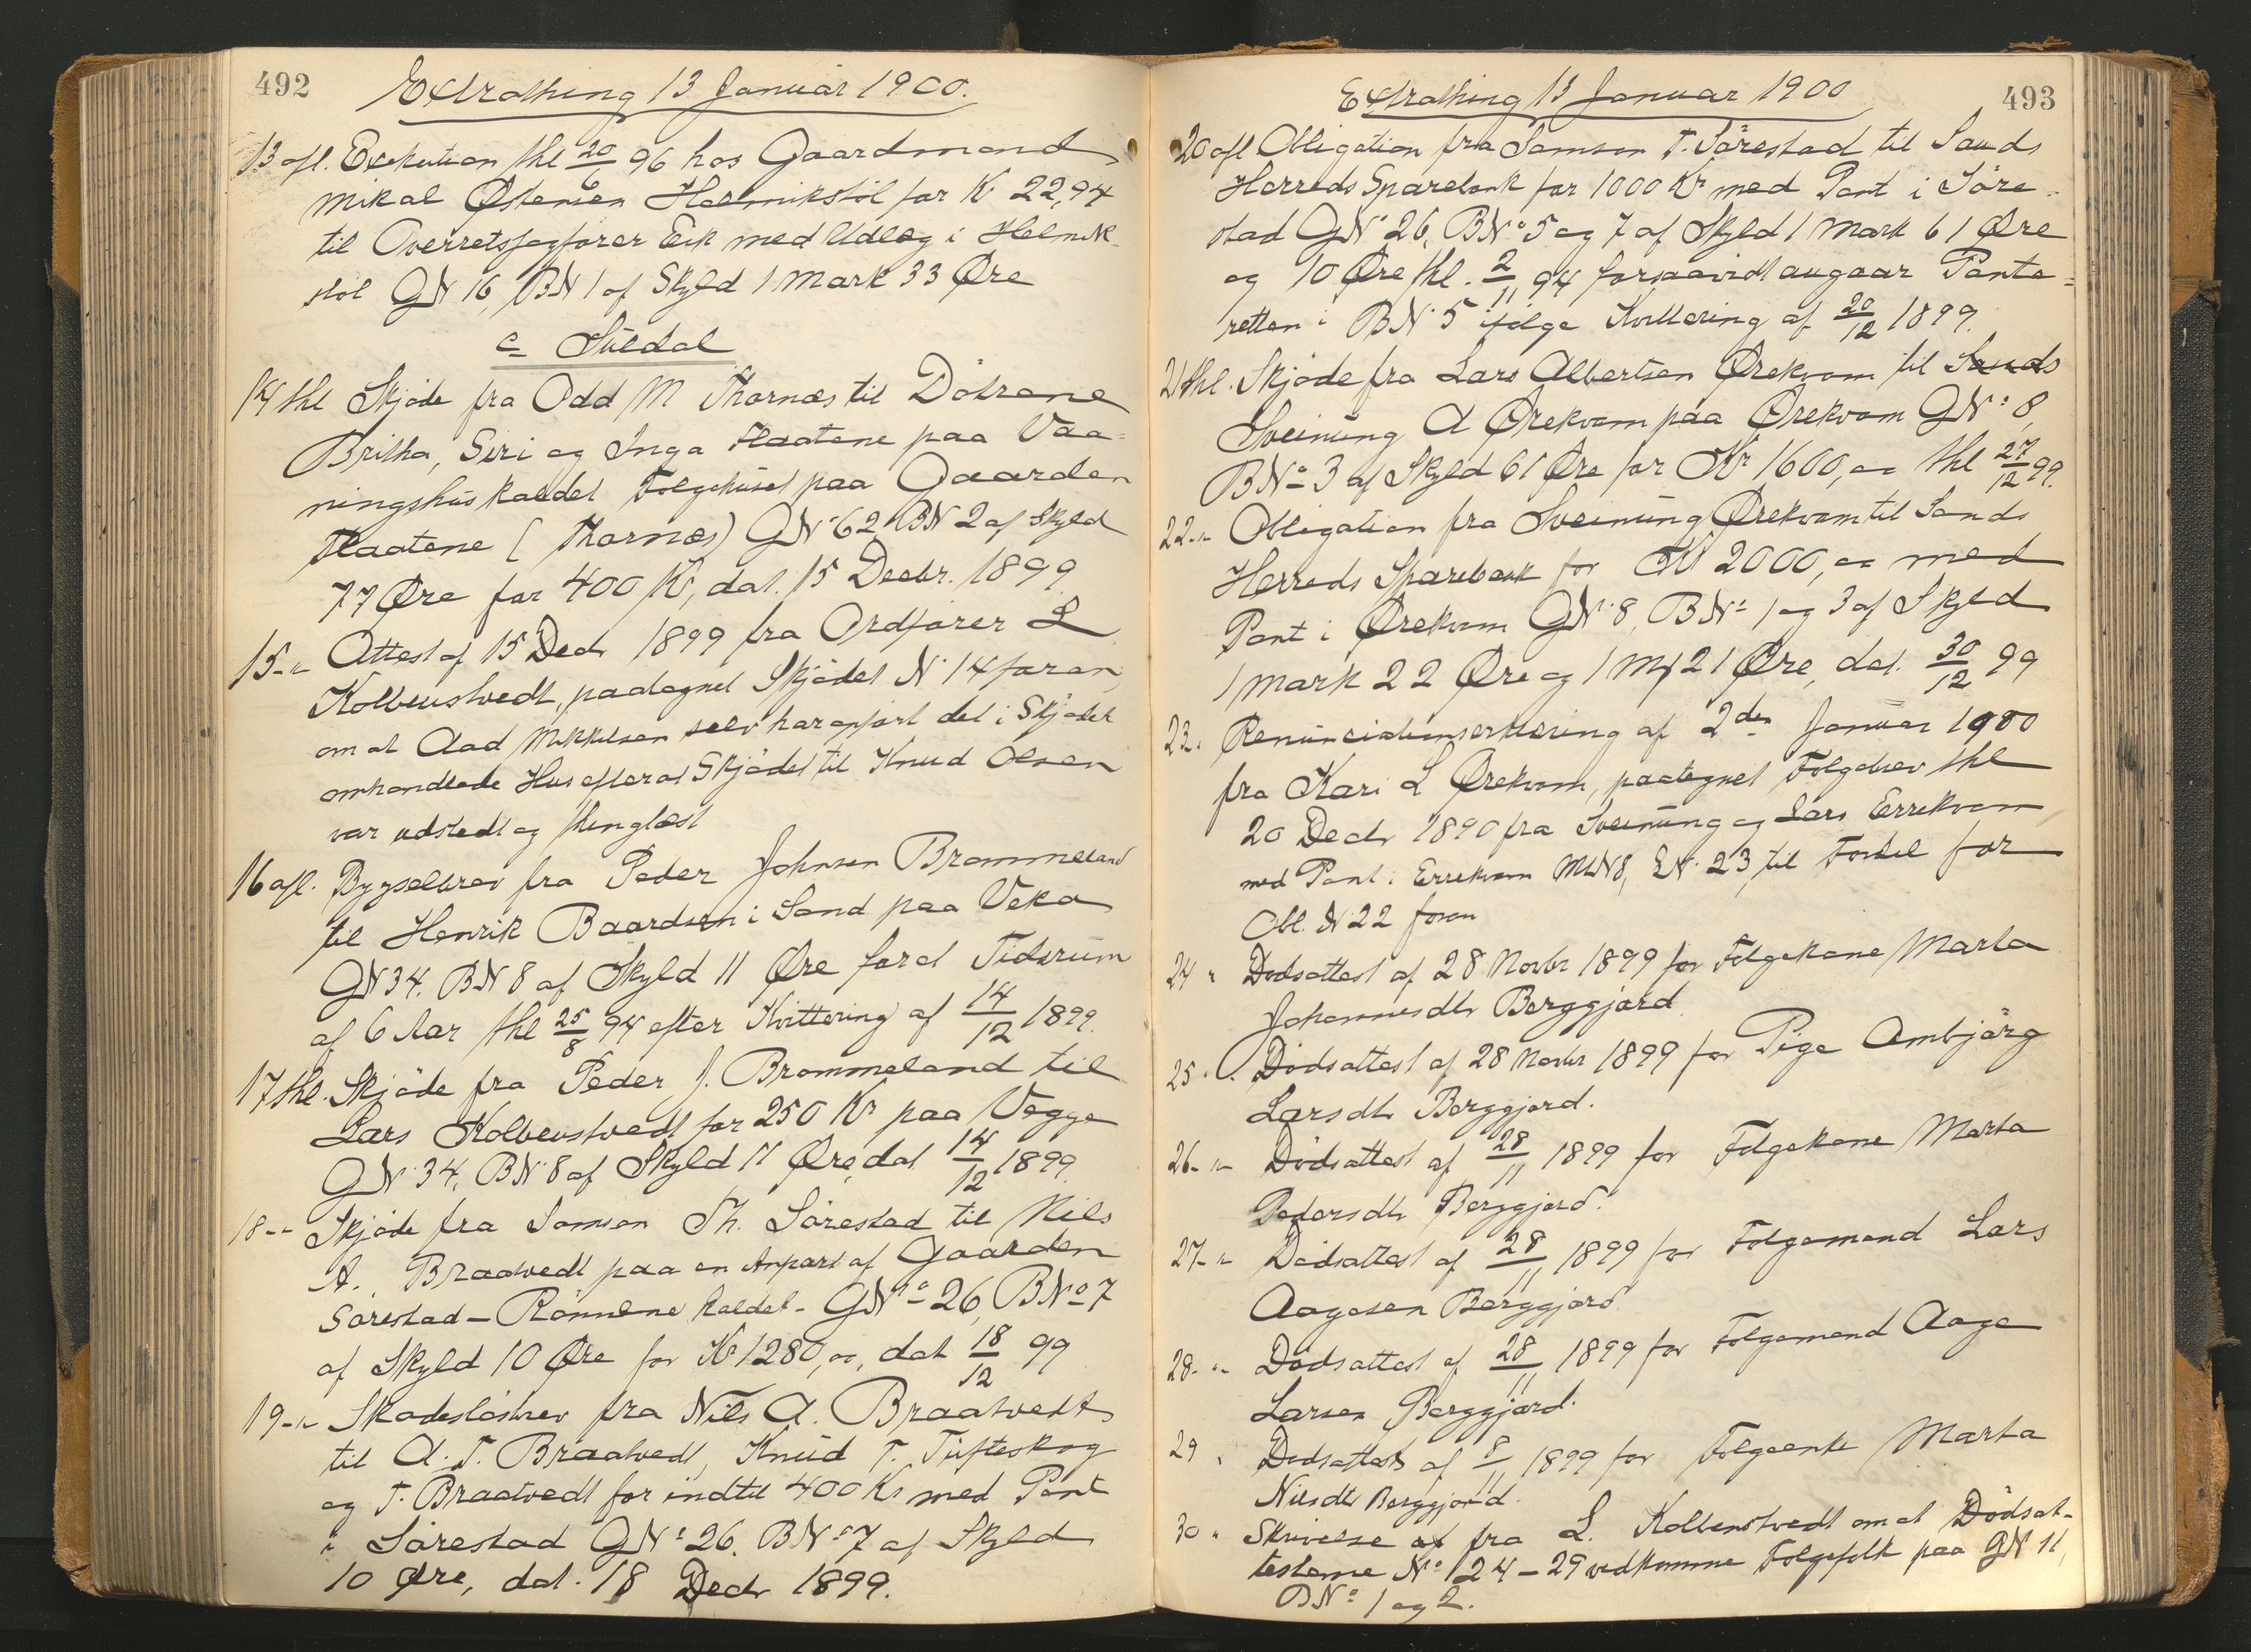 492
Extrathing 13 Januar 1900.
13 afl. Exekution thl 20/6 96 hos Gaardmand
Mikal Østensen Helmikstöl for Kr 22,94
til Overretssagfører Eck med Udlæg i Helmik-
stöl GN 16, BN 1 af Skyld 1 Mark 33 Øre
c Suldal
14 thl Skjöde fra Odd M Tharnæs til Döttrene
Britha, Siri og Inga Flaatene paa Vaa-
ningshus kaldet Folgehuset paa Gaarden
Flaatene (Tharnæs) GN 62, BN 2 af Skyld
77 Øre for 400 Kr, dat. 15 Decbr. 1899
15 -"- Attest af 15 Decbr 1899 fra Ordfører L
Kolbenstvedt, paategnet Skjödet N 14 foran,
om at Aad Mikkelsen selv har opfört det i Skjödet
omhandlede Hus efterat Skjödet til Knud Olsen
var udstedt og thinglæst
16 afl. Bygselbrev fra Peder Johnsen Brommeland
til Henrik Baardsen i Sand paa Veka
GN 34, BN 8 af Skyld 11 Øre for et Tidsrum
af 6 Aar thl 25/8 94 efter Kvittering af 14/12 1899.
17 thl. Skjöde fra Peder J. Brommeland til
Lars Kolbenstvedt for 250 Kr paa Vegge
GN 34, BN 8 af Skyld 11 Øre, dat 14/12 1899.
18 -"- Skjöde fra Samson Th. Sörestad til Nils
A. Braatvedt paa en Anpart af Gaarden
Sörestad - Rönnene kaldet - GNo 26, BNo 7
af Skyld 10 Øre for Kr 1280,00, dat 18/12 99
19 -"- Skadeslösbrev fra Nils A. Braatvedt
til A. T. Braatvedt, Knud T. Tufteskog
og T. Braatvedt for indtil 400 Kr med Pant
i Sörestad GNo 26, BNo 7 af Skyld
10 Øre, dat. 18 Decbr 1899.
493
Extrathing 13 Januar 1900
20 afl Obligation fra Samson T. Sörestad til Sands
Herreds Sparebank for 1000 Kr med Pant i Söre-
stad GNo 26, BNo 5 og 7 af Skyld 1 Mark 61 Øre
og 10 Øre thl. 2/11 94 forsaavidt angaar Pante-
retten i BN 5 ifölge Kvittering af 20/12 1899.
21 thl. Skjöde fra Lars Albertsen Ørekvam til Sands
Sveinung A Ørekvam paa Ørekvam GNo 8,
BNo 3 af Skyld 61 Øre for Kr 1600,00 thl 27/12 99.
22 -"- Obligation fra Sveinung Ørekvam til Sands
Herreds Sparebank for Kr 2000,00 med
Pant i Ørekvam GN 8, BNo 1 og 3 af Skyld
1 Mark 22 Øre og 1 Mk 21 Øre, dat. 30/12 99
23 " Renunciationserklæring af 2den Januar 1900
fra Kari L Ørekvam, paategnet Folgebrev thl
20 Decbr 1890 fra Sveinung og Lars Errekvam
med Pant i Errekvam MN 8, LN 23, til Fordel for
Obl. N 22 foran
24 " Dödsattest af 28 Novbr 1899 for Folgekone Marta
Johannesdtr Berggjord.
25 " Dödsattest af 28 Novbr 1899 for Pige Ambjörg
Larsdtr Berggjord.
26 -"- Dödsattest af 28/11 1899 for Folgekone Marta
Pedersdtr Berggjord.
27 -"- Dödsattest af 28/11 1899 for Folgemand Lars
Aagesen Berggjord
28 -"- Dödsattest af 28/11 1899 for Folgemand Aage
Larsen Berggjord.
29 " Dödsattest af 8/11 1899 for Folgeenke Marta
Nilsdtr Berggjord.
30 " Skrivelse af fra L. Kolbenstvedt om at Dödsat-
testerne No 24-29 vedkomme Folgefolk paa GN 11,
BNo 1 og 2.